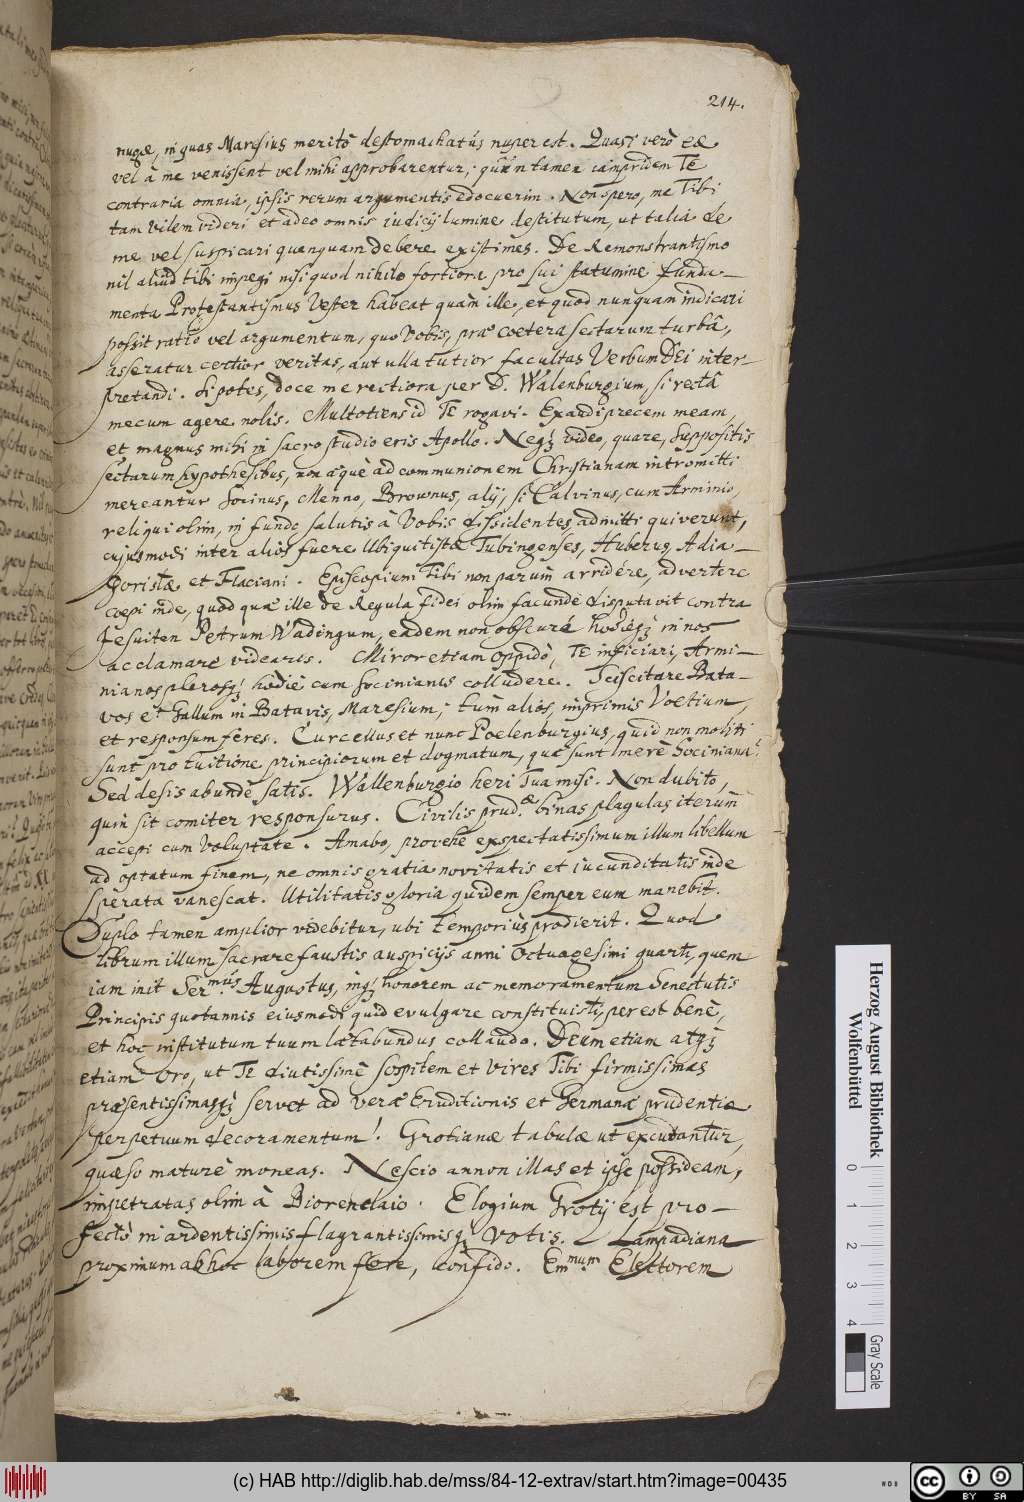 214.
nugæ, in quas Maresius meritò destomachatus nuper est. Quasi verò eæ
vel à me venissent vel mihi approbarentur; quum tamen iampridem Te
contraria omnia, ipsis rerum argumentis edocuerim. Non spero, me Tibi
tam vilem videri et adeo omnis iudicij lumine destitutum, ut talia de
me vel suspicari quanquam debere existimes. De Remonstrantismo
nil aliud tibi impegi nisi quod nihilo fortiora pro sui statumine funda-
menta Protestantismus Vester habeat quàm ille, et quod nunquam indicari
possit ratio vel argumentum, quo Vobis, præ cœtera sectarum turbâ,
asseratur certior veritas, aut ulla tutior facultas Verbum DEi inter-
pretandi. Si potes, doce me rectiora per D. Walenburgium, si rectâ
mecum agere nolis. Multotiens id Te rogavi. Exaudi precem meam,
et magnus mihi in sacro studio eris Apollo. Neq; video, quare, suppositis
sectarum hypothesibus, non æquè ad communionem Christianam intromitti
mereantur Socinus, Menno, Brownus, alij, si Calvinus, cum Arminio,
reliqui olim, in fundo salutis à Vobis dissidentes, admitti quiverunt,
cujusmodi inter alios fuere Ubiquitistæ Tubingenses, Huberus, Adia-
phoristæ et Flaciani. Episcopium Tibi non parum arridere, advertere
cœpi inde, quod quæ ille de Regula fidei olim facundè disputavit contra
Jesuiten Petrum Wadingum, eadem non obscurè hodieq; in nos
acclamare videaris. Miror etiam oppidò, Te inficiari, Armi-
nianos plerosq; hodie cum Socinianis colludere. Sciscitare Bata-
vos et Gallum in Batavis, Maresium; tùm alios, imprimis Voetium,
et responsum feres. Curcellus et nunc Poelenburgius, quid non moliti
sunt pro tuitione principiorum et dogmatum, quæ sunt merè Sociniana?
Sed de his abundè satis. Wallenburgio heri Tua misi. Non dubito,
quin sit comiter responsurus. Civilis prud.æ binas plagulas iterum
accepi cum voluptate. Amabo, provehe exspectatissimum illum libellum
ad optatum finem, ne omnis gratia novitatis et iucunditatis inde
sperata vanescat. Utilitatis gloria quidem semper eum manebit.
Duplo tamen amplior videbitur, ubi temporius prodierit. Quod
librum illum sacrare faustis auspicijs anni octuagesimi quarti, quem
iam init Ser.mus Augustus, inq; honorem ac memoramentum Senectutis
Principis quotannis eiusmodi quid evulgare constituisti, per est benè,
et hoc institutum tuum lætabundus collaudo. Deum etiam atq;
etiam oro, ut Te diutissimè sospitem et vires Tibi firmissimas
præsentissimasq; servet ad veræ Eruditionis et Germanæ prudentiæ
perpetuum decoramentum! Grotianæ tabulæ ut excudantur,
quæso maturè moneas. Nescio annon illas et ipse possideam,
impetratas olim à Biorenclaio. Elogium Grotij est pro-
fectò in ardentissimis flagrantissimisq; votis. Lampadiana
proximum ab hoc laborem fere, confido. Em.mum Electorem
Herzog August Bibliothek
Wolfenbüttel
0 1 2 3 4
Gray Scale
(c) HAB http://diglib.hab.de/mss/84-12-extrav/start.htm?image=00435
cc BY SA